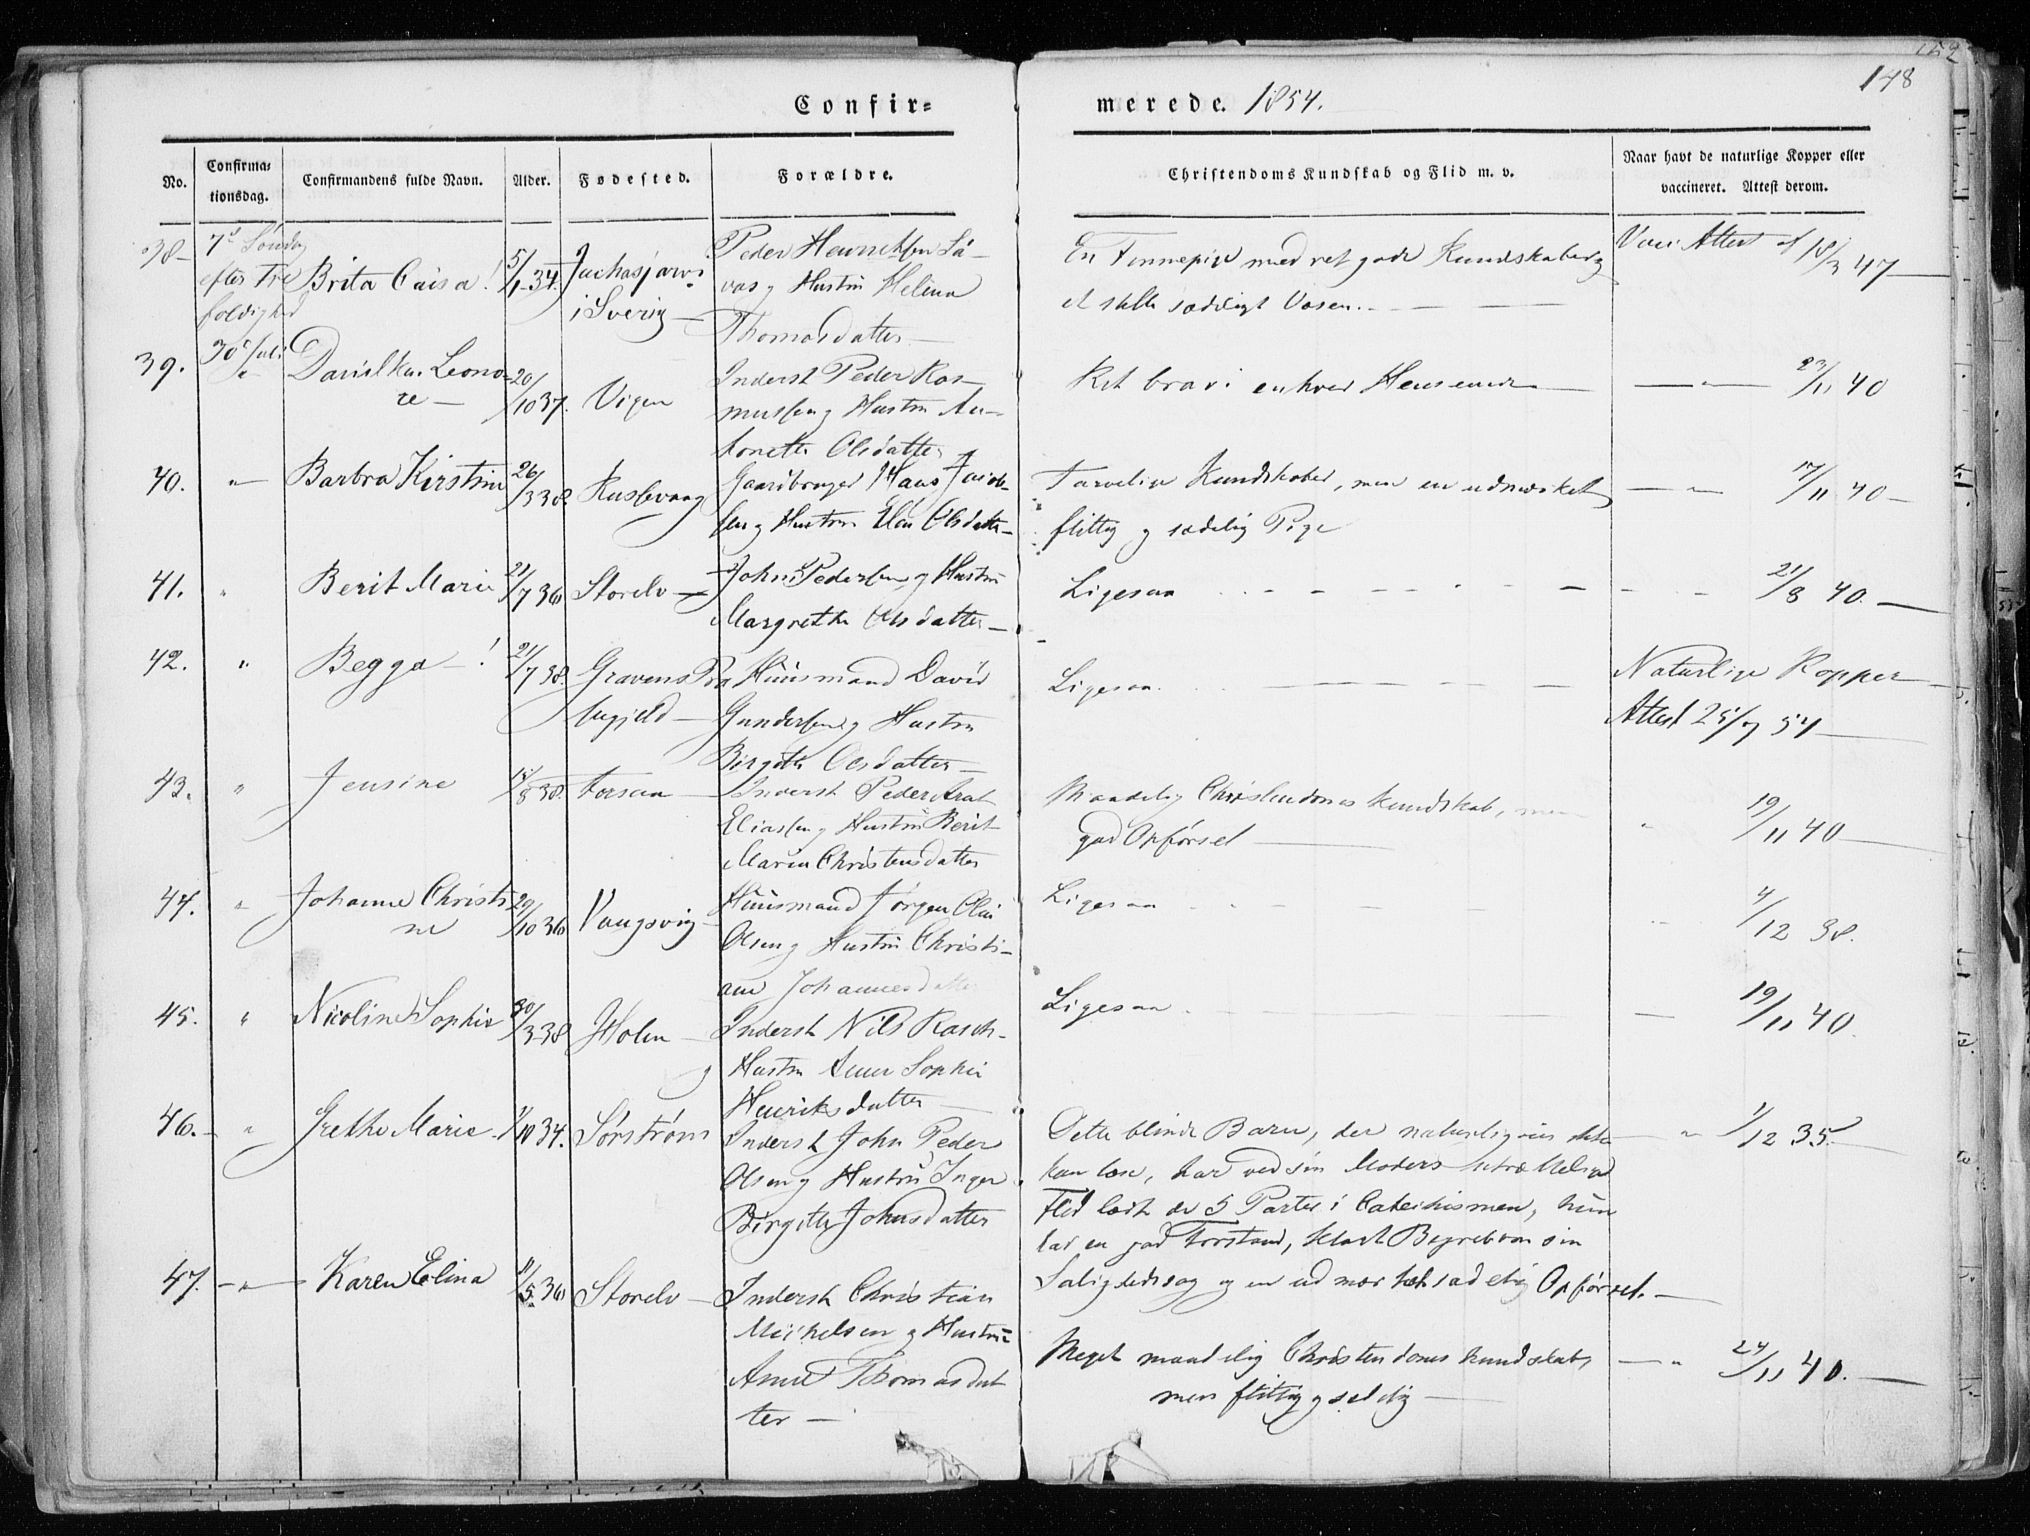 152
148
Confir=
merede. 1854.
No.
Confirma-
tionsdag.
Confirmandens fulde Navn.
Alder.
Fødested.
Forældre.
Christendoms Kundskab og Flid m. v.
Naar havt de naturlige Kopper eller
vaccineret. Attest derom.
38-
7de Søndag
efter Tre
foldighed
30 Juli
Brita Caisa!
5/1 34.
i Sverig
Peder
Hustru Helena
Thomasdatter
En Finnepige med ret gode Kundskaber og
et stille sædeligt Væsen.
Vacc Attest af 18/3 47
39.
Leono-
re
20/10 37.
Vigen
Inderst Peder Ras-
mussen og Hustru An-
tonette Olsdatter
Ret brav i enhver Henseende
23/11 40
40.
"
Barbra Kirstine
26/3 38.
Gaardbruger Hans Jacob-
sen og Hustru Elen Olsdatter
Tarvelige Kundskaber, men en udmærket
flittig og sædelig Pige
17/11 40
41.
"
Berit Marie
21/7 36
Storelv
John Pedersen og Hustru
Margrethe Olsdatter
Ligesaa
21/8 40.
42.
"
Begga !
21/7 38.
Gravens Præ
stegjeld
Huusmand David
Gundersen og Hustru
Birgitte Olsdatter
Ligesaa
Naturlige Kopper
Attest 25/7 54
43.
"
Jensine
Forsaa
Inderst Peder Arat
Eliassen og Hustru Berit
Maria Christensdatter
Maadelig Christendoms kundskab, men
god Opførsel
19/11 40
44.
"
Johanne Christi
ne
29/10 36
Vangsvig
Huusmand Jørgen Elias
Olsen og Hustru Christi-
ane Johannesdatter
Ligesaa
4/12 38.
45.
"
Nicoline Sophie
30/3 38.
Holen
Inderst Nils Rasch
og Hustru Anne Sophie
Henriksdatter
Ligesaa
19/11 40.
46.
"
Grethe Marie
1/10 34.
Sørstrøm
Inderst John Peder
Olsen og Hustru Inger
Birgitte Johnsdatter
Dette blinde Barn, der naturligviis ikke
kan læse, har ved sin Moders utrættelige
Flid lært de 5 Parter i Catechismen, hun
har en god Forstand, klart Begreb om sin
Salighedssag og en udmærket sædelig Opførsel.
1/12 35.
47.
"
Karen Elina
11/5 36
Storelv
Inderst Christian
Michelsen og Hustru
Anne Thomasdat
ter
Meget maadelig Christendoms kundskab,
men flittig og sædelig
24/11 40.